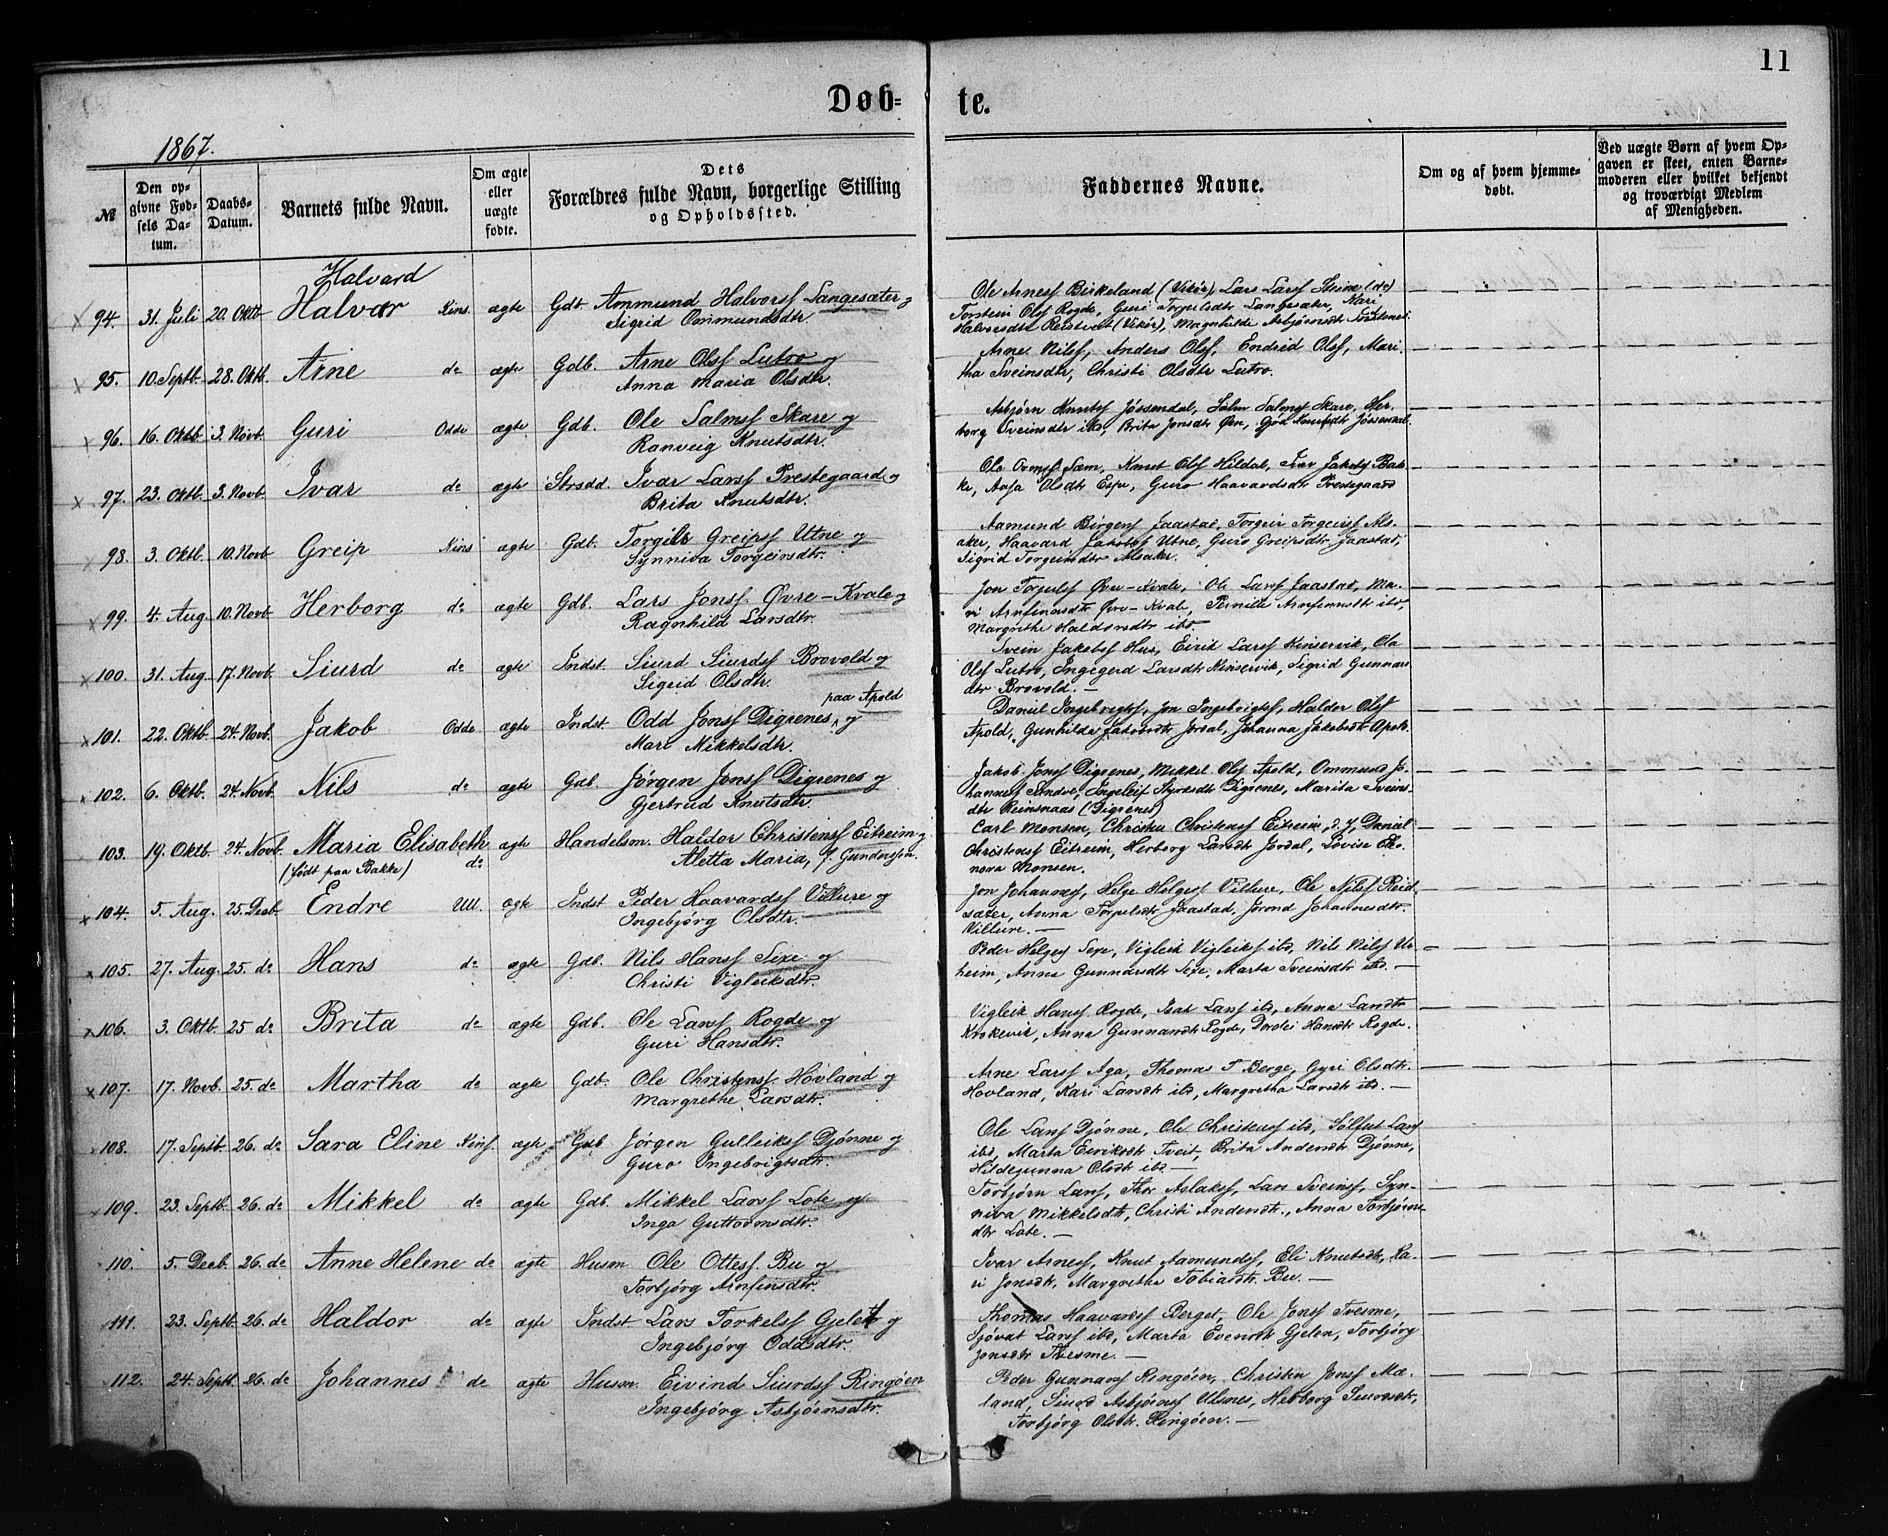 11
Døb=
te.
1867.
№
Den op-
givne Fød-
sels Da-
tum.
Daabs-
Datum.
Barnets fulde Navn.
Om ægte
eller
uægte
fødte.
Dets
Forældres fulde Navn, borgerlige Stilling
og Opholdssted.
Faddernes Navne.
Om og af hvem hjemme-
døbt.
Ved uægte Børn af hvem Op-
gaven er skeet, enten Barne-
moderen eller hvilket bekjendt
og troværdigt Medlem
af Menigheden.
Halvard
94. 31. Juli 20. Oktb. Halvor Kins. ægte Gdb. Ammund Halvorsf Langesæter og
Sigrid Ommundsdtr.
Ole Arnesf Birkeland (Vikør), Lars Larsf Steine (do)
Torstein Olsf Rogde, Guri Torfinsdt Langesæter, Mari
Halvorsdtr (Vikør), Magnhilde Asbjørnsdt
95. 10. Septb. 28. Oktb. Arne do ægte Gdb. Arne Olsf Lutro og
Anna Maria Olsdtr.
Arne Nilsf, Anders Olsf, Endrid Olsf, Mari-
tha Sveinsdtr, Christi Olsdtr Lutro.
96. 16. Oktb. 3. Novb. Guri Odde ægte Gdb. Ole Salmsf Skare og
Ranveig Knutsdtr.
Asbjørn Knutsf Jøssendal, Salm Salmsf Skare, Her-
borg Sveinsdtr ibd, Brita Jonsdtr Øen, Knutsdt Jøssendal.
97. 23. Oktb. 3. Novb. Ivar do ægte Strsdd. Ivar Larsf Prestegaard og
Brita Knutsdtr.
Ole Ormsf Sæm, Knut Olsf Hildal, Ivar Jakobsf Bak-
ke, Aasa Olsdtr Espe, Guro Haavardsdtr Prestegaard
98. 3. Oktb. 10. Novb Greip Kins ægte Gdb. Torgils Greipsf Utne og
Synniva Torgeirsdtr.
Aamund Birgersf Jaastad, Torgeir Torgeirsf Als-
aker, Haavard Jakobsf Utne, Guro Greipsdtr Jaastad,
Sigrid Torgeirsdtr Alsaker.
99. 4. Aug 10. Novb Herborg do ægte Gdb. Lars Jonsf. Øvre-Kvale og
Ragnhild Larsdtr.
Jon Øvre-Kvale, Ole Larsf Jaastad, Ma-
ri Arnfinnsdtr Øvre-Kvale, Pernille Arnfinnsdt ibd,
Margrethe Haldorsdtr ibd.
100. 31. Aug 17. Novb. Siurd do ægte Indst. Siurd Siurdsf Brovold og
Sigrid Olsdtr.
Svein Jakobsf Hus, Eirik Larsf Kinservik, Ola
Olsf Lutro, Ingegerd Larsdt Kinservik, Sigrid Gunnars
dtr Brovold. —
101. 22. Oktb. 24. Novb. Jakob Odde ægte Indst. Odd Jonsf Digrenes, og
paa Apold
Mari Mikkelsdtr.
Daniel Ingebrigtsf, Jon Ingebrigtsf, Haldor Olsf
Apold, Gunhilde Jakobsdtr Jordal, Johanna Jakobsdt Apold.
102. 6. Oktb. 24. Novb. Nils do ægte Gdb. Jørgen Jonsf Digrenes og
Gjertrud Knutsdtr.
Jakob Jonsf Digrenes, Mikkel Olsf Apold, Ommund Jo-
hannesf Sandve, Ingeleif Digrenes, Marita Sveins-
dtr Reinsnaas (Digrenes)
103. 19. Oktb. 24. Novb. Maria Elisabeth
(født paa Bakke) do ægte Handelsm. Haldor Christensf Eitreim og
Aletta Maria, f. Gundersen.
Carl Monsen, Christen Christensf Eitreim, d. Y, Daniel
Christensf Eitreim, Herborg Larsdt Jordal, Lovise Eleo-
nora Monsen.
104. 5. Aug. 25. Decb. Endre Ull. ægte Indst Peder Haavardsf Villure og
Ingebjørg Olsdtr.
Jon Johannesf, Helge Helgesf Villure, Ole Nilsf Reid-
sæter, Anna Jaastad, Jorond Johannesdtr.
Villure. —
105. 27. Aug. 25. do Hans do ægte Gdb. Nils Hansf Sexe og
Christi Vigleiksdtr.
Peder Helgesf Sexe, Vigleik Vigleiksf ibd, Nils Nilsf Us-
heim, Anna Gunnarsdt Sexe, Marta Sveinsdtr ibd. —
106. 3. Oktb. 25 do Brita do ægte Gdb. Ole Larsf Rogde og
Guri Hansdtr.
Vigleik Hansf Rogde, Isak Larsf ibd, Anna Larsdtr
Krokevik, Anna Gunnarsdt Rogde, Hansdtr Rogde.
107. 17. Novb. 25. do Martha do ægte Gdb. Ole Christensf. Hovland og
Margrethe Larsdtr.
Arne Larsf Aga, Thomas T Berge, Gyri Olsdtr.
Hovland, Kari Larsdt ibd, Margretha Larsdt ibd. —
108. 17. Septb. 26. do Sara Eline Kins. ægte Gdb Jørgen Gulleiksf Djønne og
Guro Ingebrigtsdtr.
Ole Larsf Djønne, Ole Christensf ibd, Larsf
ibd, Marta Eiriksdtr Tveit, Brita Andersdtr Djønne,
Hildegunna Olsdt ibd. —
109. 23. Septb. 26. do Mikkel do ægte Gdb. Mikkel Larsf Lote og
Inga Guttormsdtr.
Torbjørn Larsf, Thor Aslaksf, Lars Sveinsf, Syn-
niva Mikkelsdtr, Christi Andersdtr., Anna Torbjørns
dtr Lote. —
110. 5. Decb. 26. do Anne Helene do ægte Husm Ole Ottesf. Bu og
Torbjørg Arnfinsdtr.
Ivar Arnesf, Knut Aamundsf, Eli Knutsdtr, Ka-
ri Jonsdtr, Margretha Tobiasdtr. Bu. —
111. 23. Septb. 26. do Haldor do ægte Indst Lars Torkelsf og
Ingebjørg Oddsdtr.
Thomas Haavardsf Berget, Ole Jonsf Tvesme,
Sjovat Larsf ibd, Marta Gjelen, Torbjørg
Jonsdtr Tvesme. —
112. 24. Septb. 26. do Johannes do ægte Husm. Eivind Siurdsf Ringøen
Ingebjørg Asbjørnsdtr.
Peder Gunnarsf Ringøen, Christen Jonsf Mæ-
land, Siurd Asbjørnsf Ulsnes, Herborg Siursdtr,
Torbjørg Olsdtr. Ringøen. —